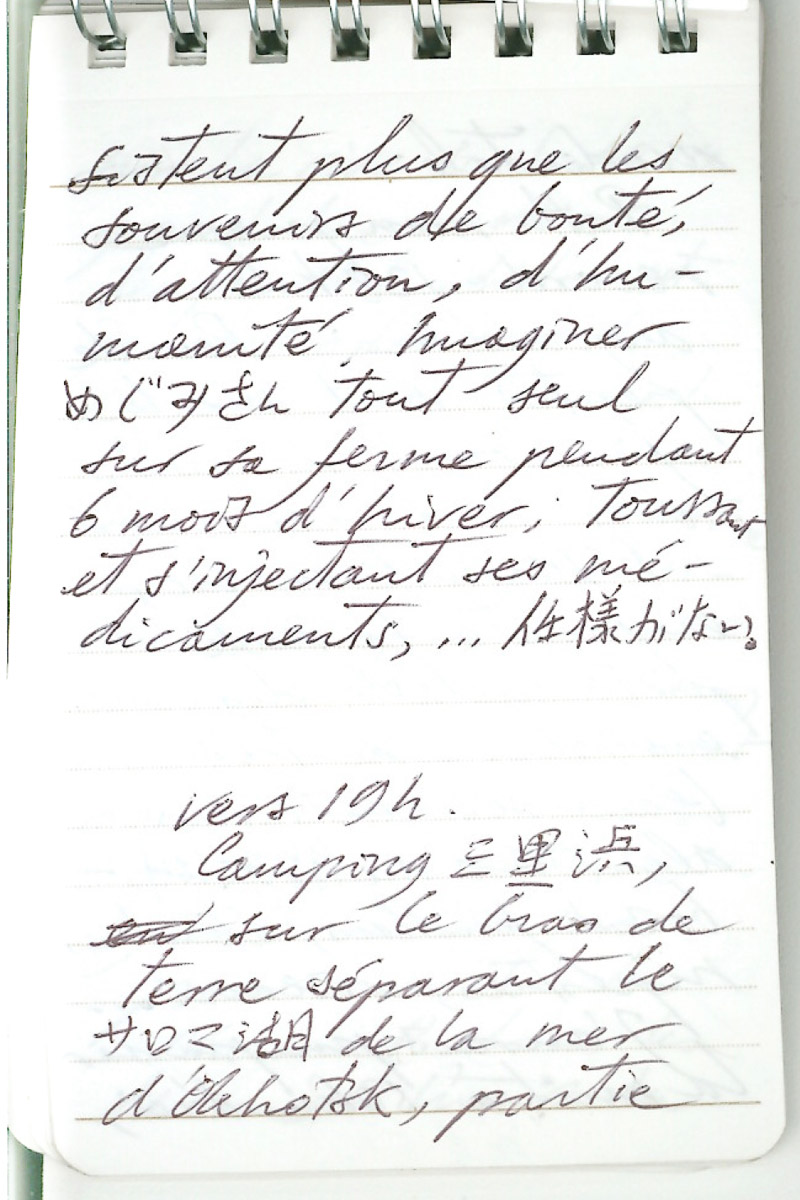 sistent plus que les
souvenirs de bonté,
d'attention, d'hu-
manité. Imaginer
めぐみさん tout seul
sur sa ferme pendant
6 mois d'hiver, toussant
et s'injectant ses mé-
dicaments, ... 仕様がない。
vers 19h.
Camping 三里浜,
sur le bras de
terre séparant le
サロマ湖 de la mer
d'Okhotsk, partie